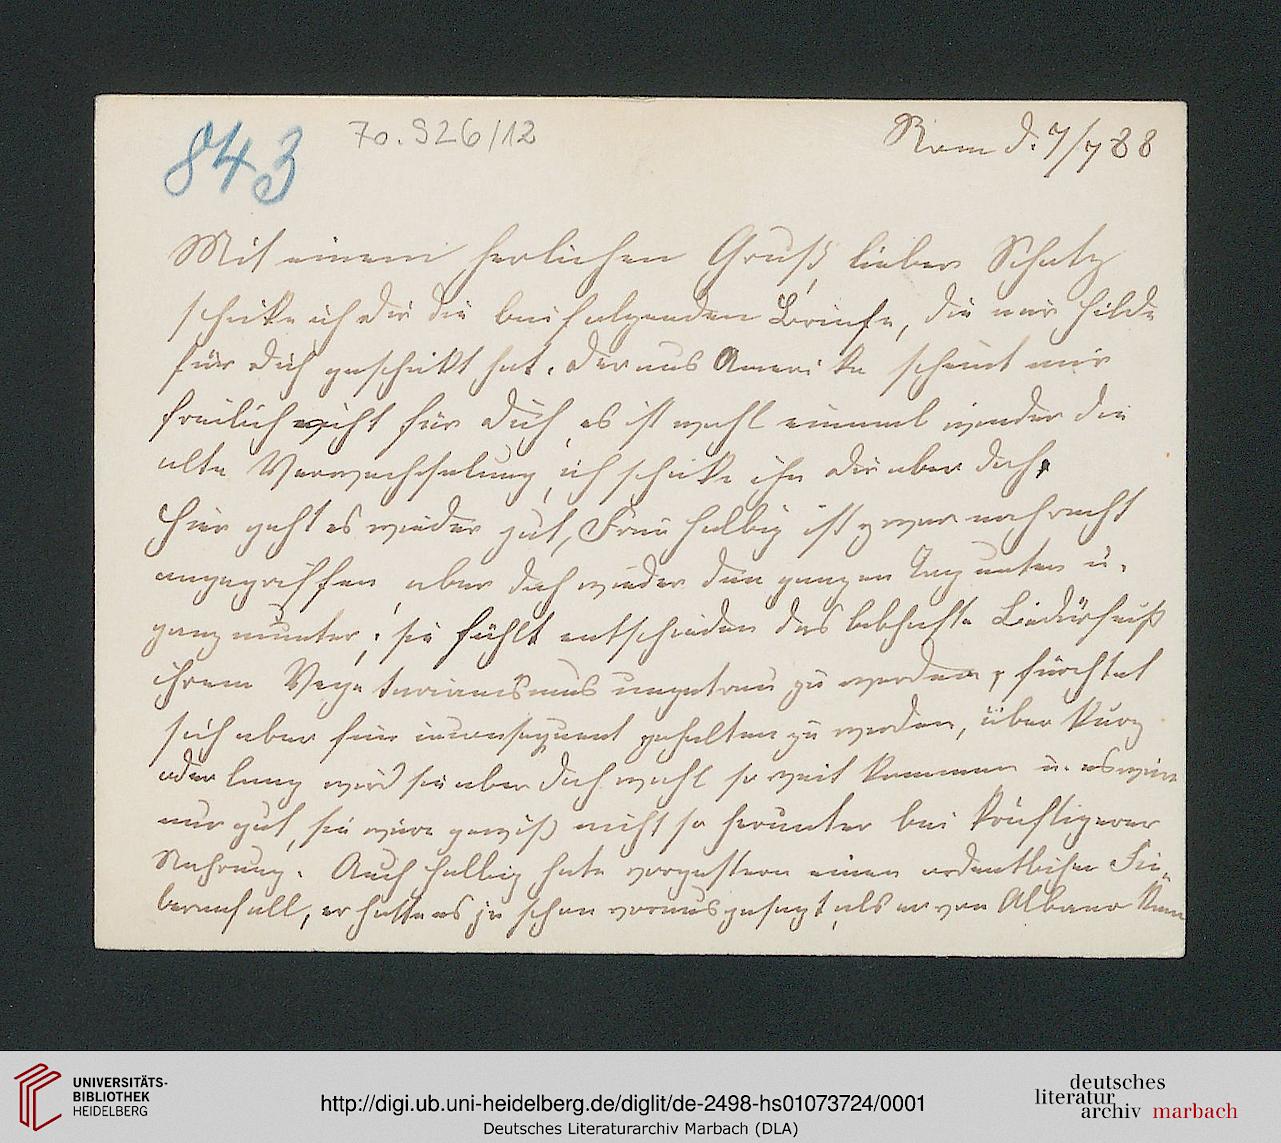 843
70.926/12
Rom d. 7/7 88
Mit einem herlichen Gruß, lieber Schatz
schicke ich dir die beifolgenden Briefe, die mir Hilde
für dich geschickt hat. Der aus Amerika scheint mir
freilich nicht für dich, es ist wohl einmal wieder die
alte Verwechselung, ich schicke ihn dir aber doch.
Hier geht es wieder gut, Frau Helbig ist zwar noch recht
angegriffen, aber doch wieder den ganzen Tag unten u.
ganz munter; sie fühlt entschieden das lebhafte Bedürfniß
ihrem Vegetarianismus ungetreu zu werden, fürchtet
sich aber für inconsequent gehalten zu werden, über kurz
oder lang wird sie aber doch wohl so weit kommen u. es wäre
nur gut, sie wäre gewiß nicht so herunter bei kräftigerer
Nahrung. Auch Helbig hatte vorgestern einen ordentlichen Fie-
beranfall, er hatte es ja schon vorausgesagt, als er von Albano kam
UNIVERSITÄTS-
BIBLIOTHEK
HEIDELBERG
http://digi.ub.uni-heidelberg.de/diglit/de-2498-hs01073724/0001
Deutsches Literaturarchiv Marbach (DLA)
deutsches
literatur
archiv marbach